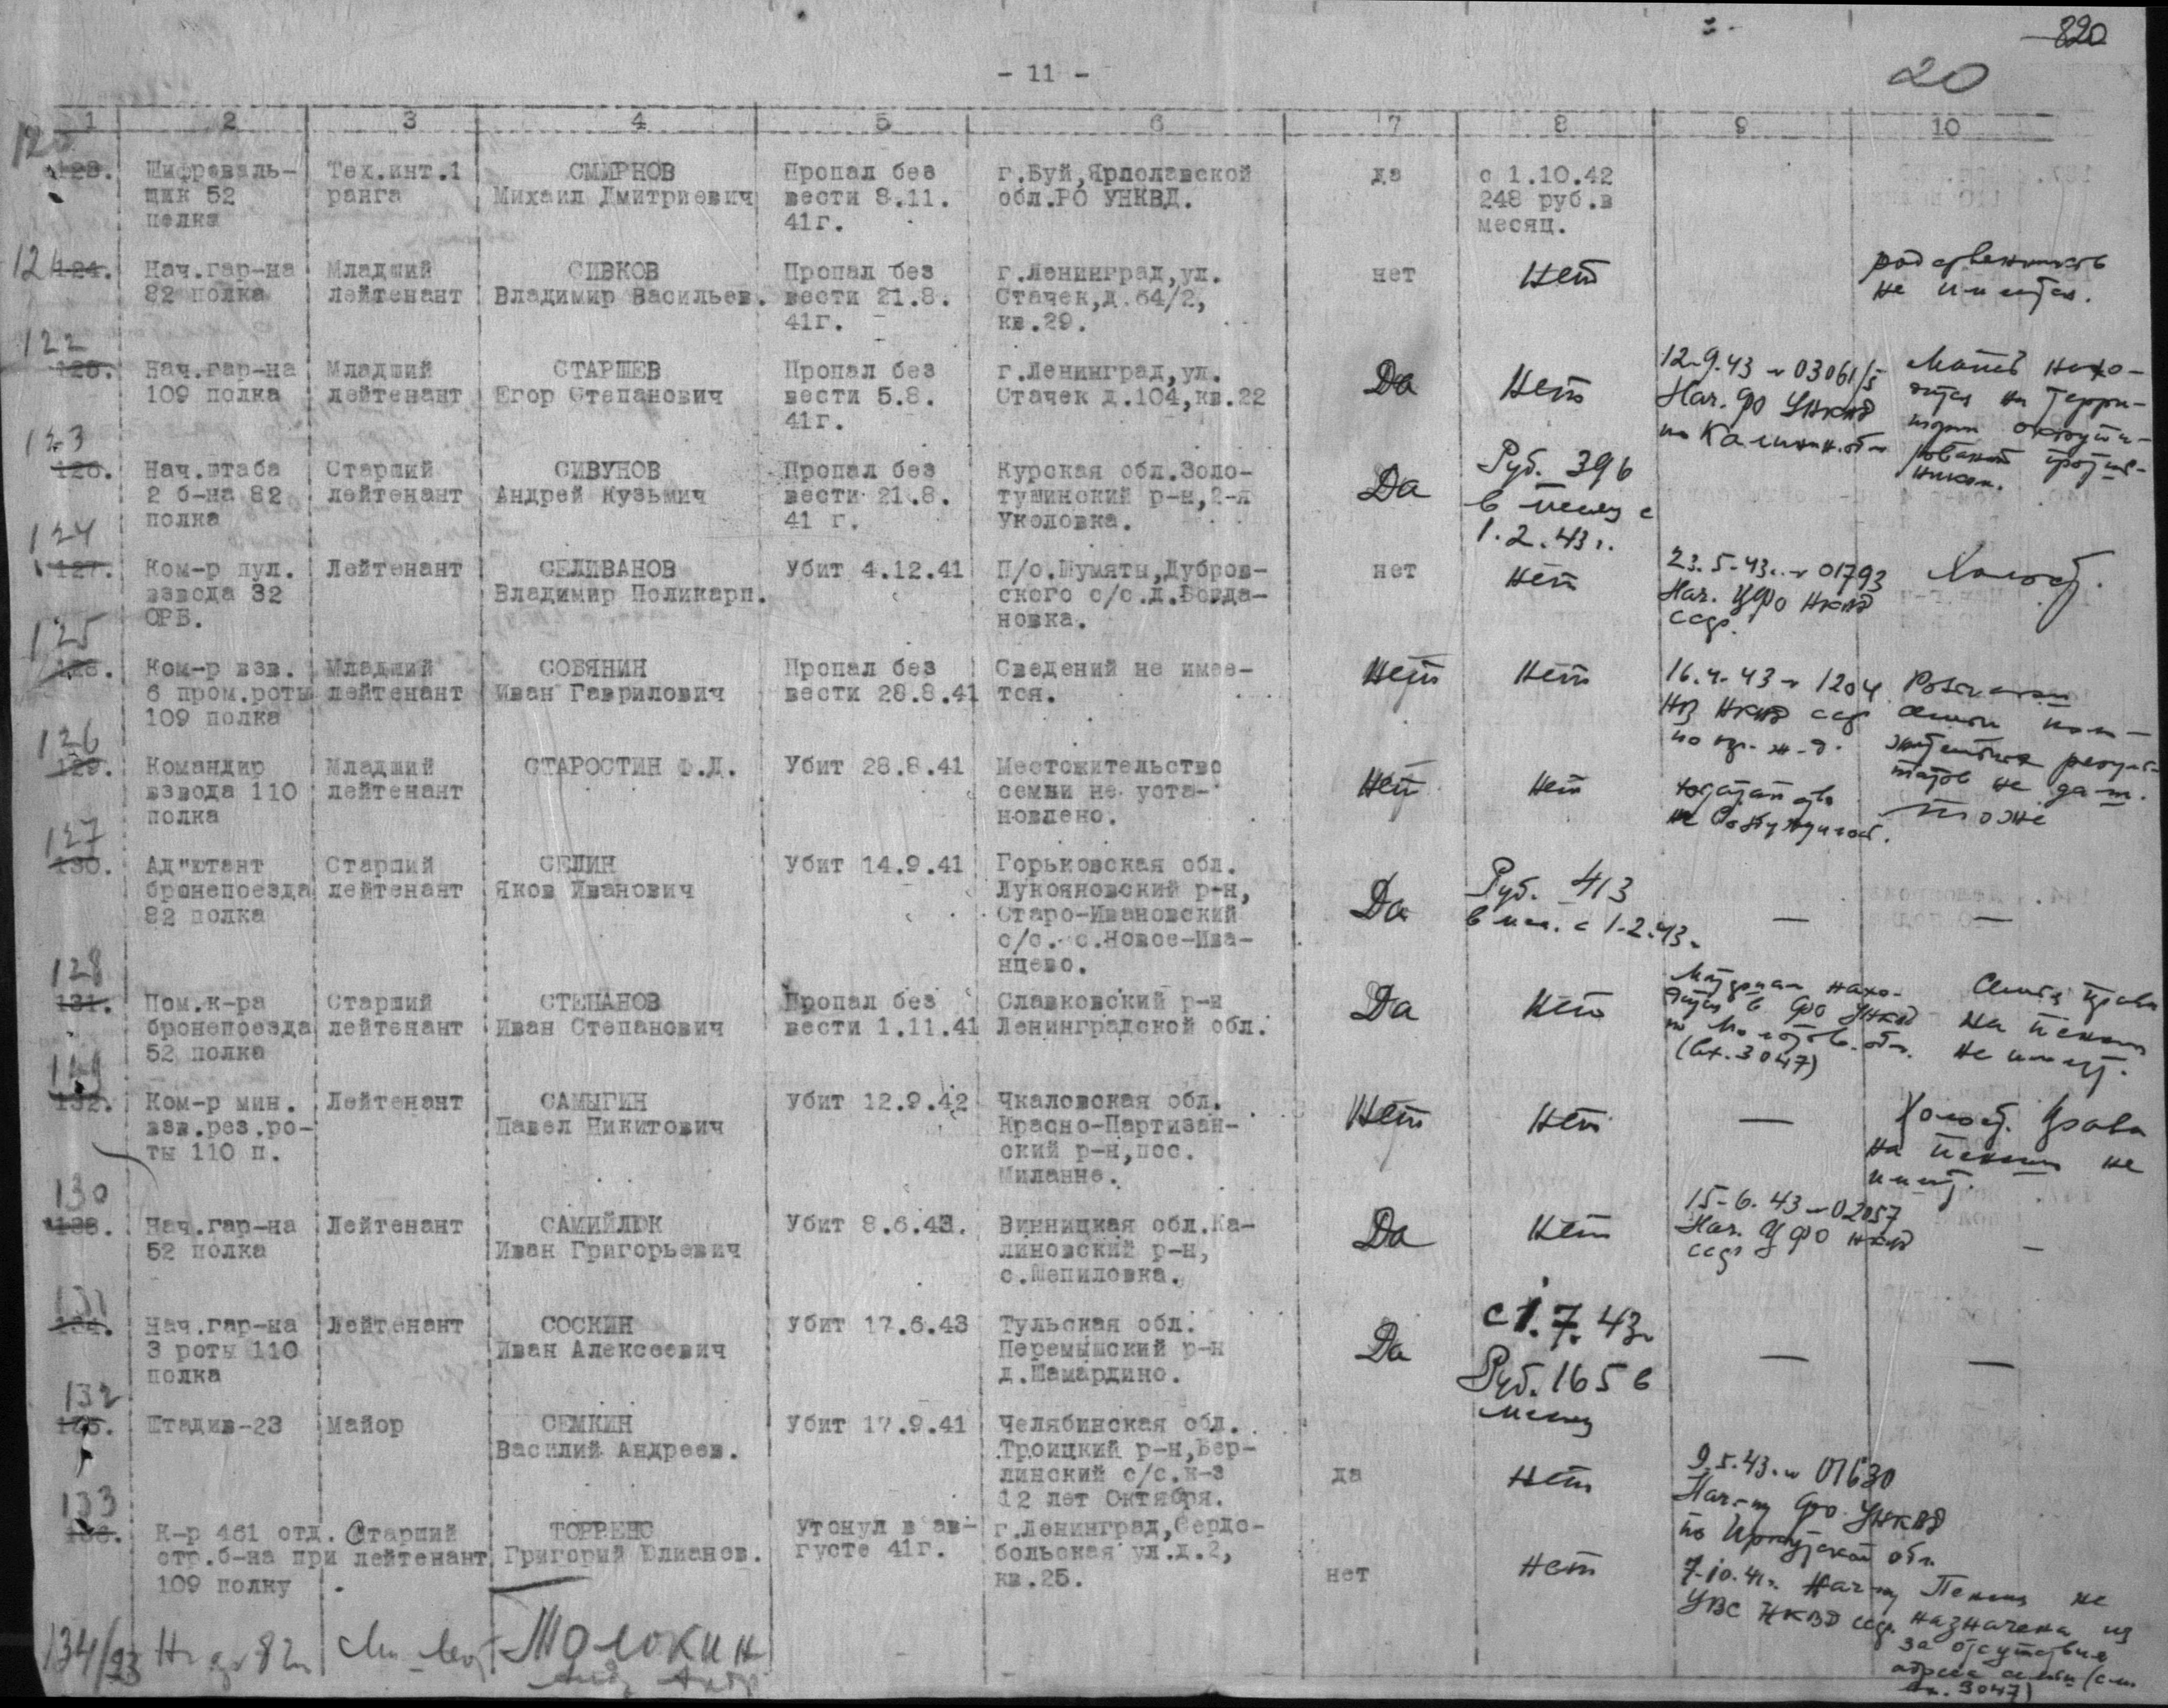 820
- 11 -
20
1 2 3 4 5 6 7 8 9 10
123. Шифроваль- Тех.инт.1 СМИРНОВ Пропал без г.Буй,Ярполавской да с 1.10.42
щик 52 ранга Михаил Дмитриевич вести 8.11. обл.РО УНКВД. 248 руб.в
полка 41г. месяц.
124. Нач.гар-на Младший СИВКОВ Пропал без г.Ленинград,ул. нет Нет
82 полка лейтенант Владимир Васильев. вести 21.8. Стачек,д.64/2, не имеется.
41г. кв.29.
122
125. Нач.гар-на Младший СТАРШЕВ Пропал без г.Ленинград,ул. Да Нет 12-9.43 03061/5 Мать нахо-
109 полка лейтенант Егор Степанович вести 5.8. Стачек д.104,кв.22 Нач. ФО УНКВД дится на терри-
41г. по Калинин.обл тории оккупи-
рованной против-
ником.
123
126. Нач.штаба Старший СИВУНОВ Пропал без Курская обл.Золо- Да Руб. 396
2 б-на 82 лейтенант Андрей Кузьмич вести 21.8. тушинский р-н,2-я в месяц с
полка 41 г. Уколовка. 1.2.43г.
124
127. Ком-р пул. Лейтенант СЕЛИВАНОВ Убит 4.12.41 П/о.Шумяты,Дубров- нет нет 23.5-43г. 01793 Холост.
взвода 32 Владимир Поликарп. ского с/с.д.Богда- Нач. ЦФО НКВД
ОРБ. новка. ссср.
125
128. Ком-р взв. Младший СОБЯНИН Пропал без Сведений не имее- Нет Нет 16.4-43 1204 Розыскание
6 пром.роты лейтенант Иван Гаврилович вести 28.8.41 тся. НКВД ссср семьи поло-
109 полка по ж.д. жительных резуль-
татов не дали.
126
129. Командир Младший СТАРОСТИН Ф.Д. Убит 28.8.41 Местожительство Нет Нет ходатайство тоже
взвода 110 лейтенант семьи не уста- не возбуждалось.
полка новлено.
127
130. Ад"ютант Старший СЕЛИН Убит 14.9.41 Горьковская обл. Да Руб. 413 — —
бронепоезда лейтенант Яков Иванович Лукояновский р-н, в мес. с 1-2.43г.
82 полка Старо-Ивановский
с/с. с.Новое-Ива-
нцево.
128
131. Пом.к-ра Старший СТЕПАНОВ Пропал без Славковский р-н Да Нет Материал нахо- Семья права
бронепоезда лейтенант Иван Степанович вести 1.11.41 Ленинградской обл. дится в ФО УНКВД на пенсию
52 полка по Молотов.обл. не имеет.
(вх.3047)
132. Ком-р мин. Лейтенант САМЫГИН Убит 12.9.42 Чкаловская обл. Нет Нет — Холост. Права
взв.рез.ро- Павел Никитович Красно-Партизан- на пенсию не
ты 110 п. ский р-н,пос. имеет.
Миланне.
130
133. Нач.гар-на Лейтенант САМИЙЛЮК Убит 8.6.43. Винницкая обл.Ка- Да Нет 15-6.43 02057 —
52 полка Иван Григорьевич линовский р-н, Нач. ЦФО НКВД
с.Шепиловка. ссср
131
134. Нач.гар-на Лейтенант СОСКИН Убит 17.6.43 Тульская обл. Да с 1.7.43г — —
3 роты 110 Иван Алексеевич Перемышский р-н Руб.165 в
полка д.Шамардино. месяц
132
135. Штадив-23 Майор СЕМКИН Убит 17.9.41 Челябинская обл. да Нет 9.5.43г. 01630
Василий Андреев. Троицкий р-н,Бер- Нач-ку ФО УНКВД
линский с/с.к-з по Иркутской обл.
12 лет Октября.
133
136. К-р 461 отд. Старший ТОРРЕНС Утонул в ав- г.Ленинград,Сердо- нет нет 7-10-41г. Нач-ку Пенсия не
стр.б-на при лейтенант Григорий Юлианов. густе 41г. больская ул.д.2, УВС НКВД ссср назначена из
109 полку кв.25. за отсутствия
адреса семьи (см.
вх. 3047)
134/93 82п Мл. лейт Толокин